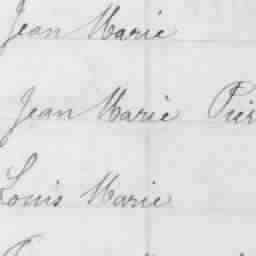 Jean Marie
Jean Marie
Louis Marie